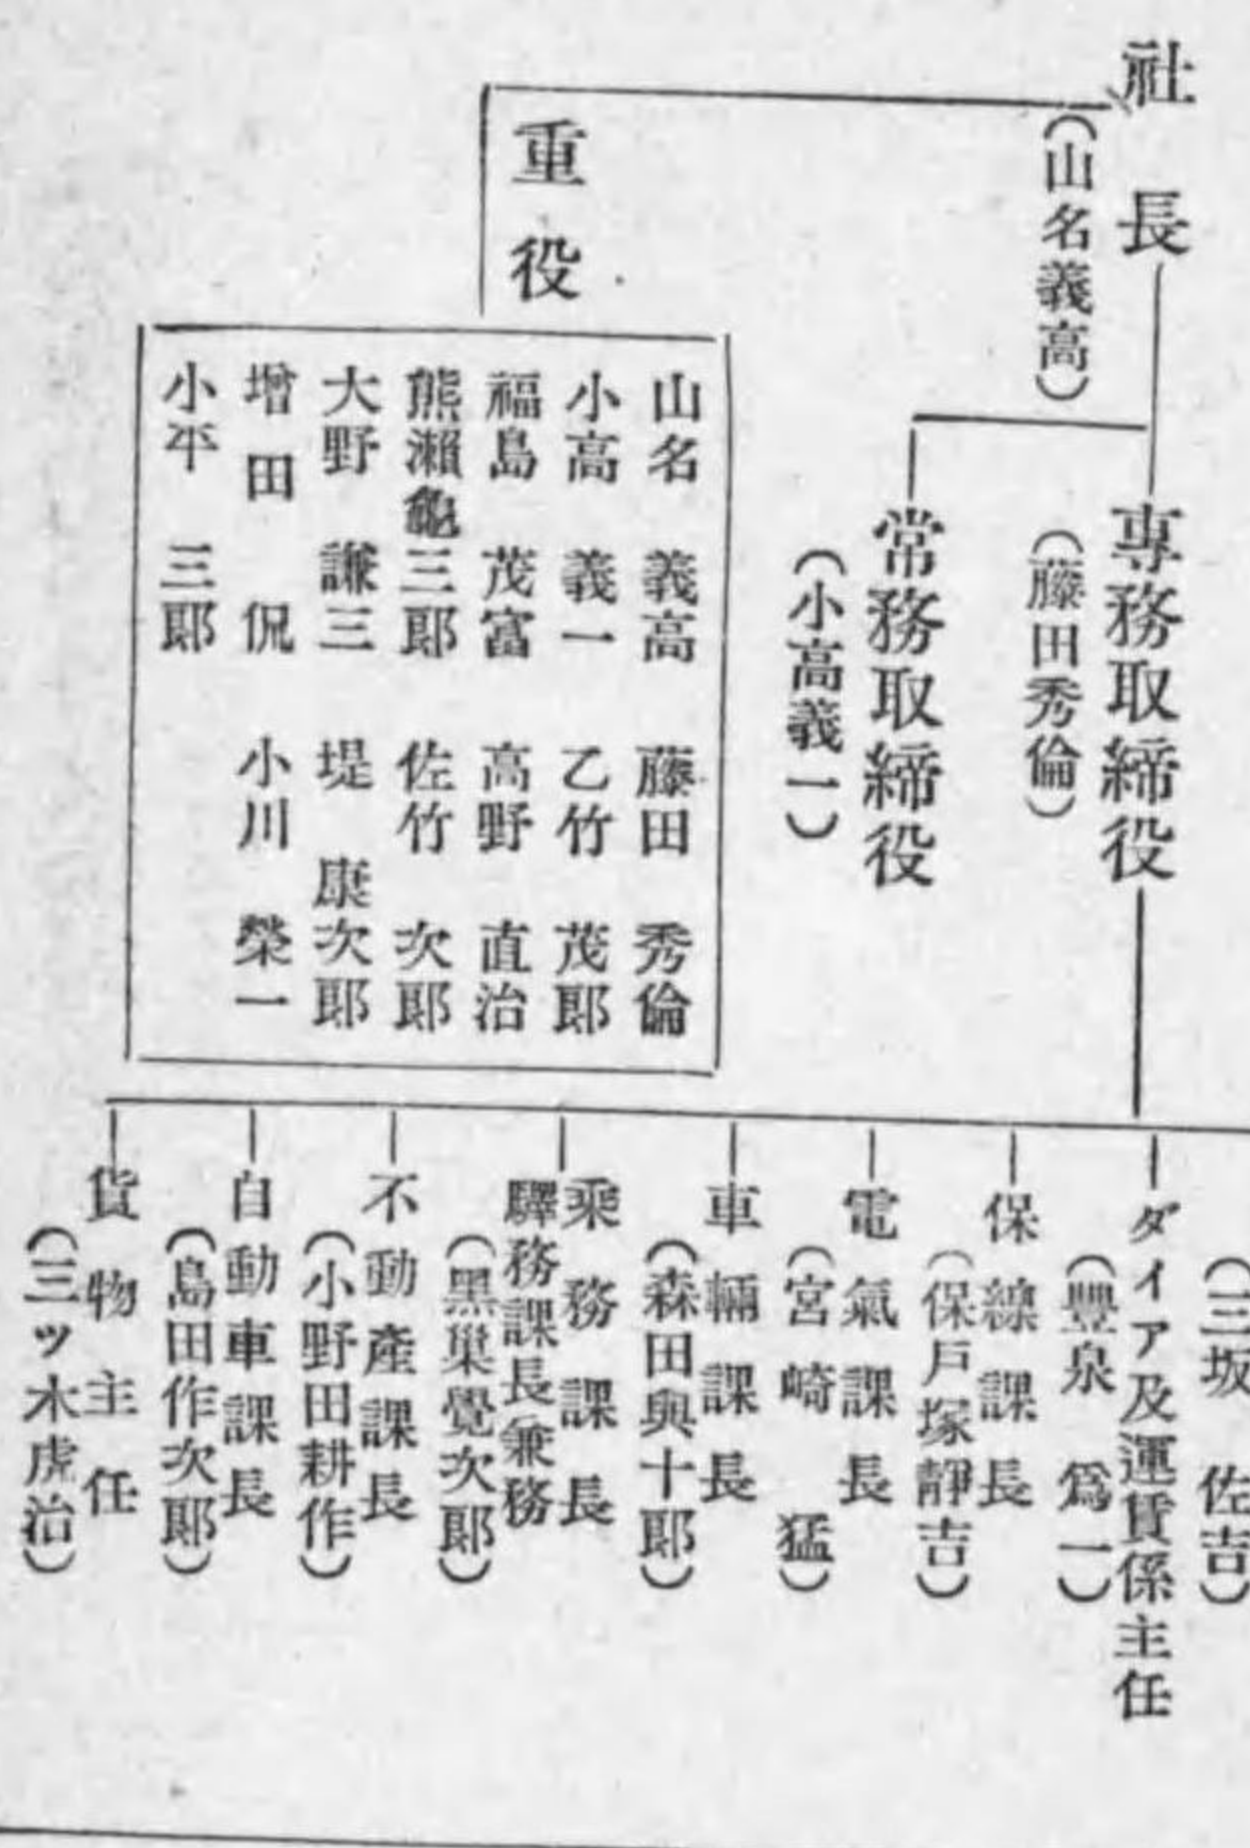 社長
(山名義高)
重役
専務取締役
(藤田秀倫)
常務取締役
(小高義一)
山名義高 藤田秀倫
小高義一 乙竹茂郎
福島茂富 高野直治
熊瀬龜三郎 佐竹次郎
大野謙三 堤康次郎
增田侃 小川榮一
小平三郎
(三坂佐吉)
ダイア及運賃係主任
(豐泉爲一)
保線課長
(保戸塚靜吉)
電氣課長
(宮崎猛)
車輛課長
(森田與十郎)
乘務課長
驛務課長兼務
(黑巢覺次郎)
不動產課長
(小野田耕作)
自動車課長
(島田作次郎)
貨物主任
(三ツ木虎治)